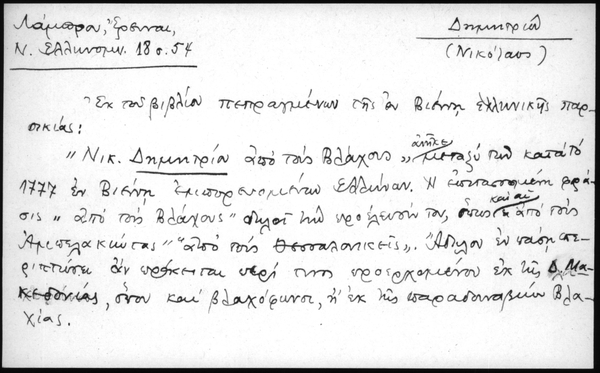 Λάμπρου, Ἔρευναι,
Ν. Ἑλληνομν. 18 σ. 54
Δημητρίου
(Νικόλαος)
Ἐκ τοῦ βιβλίου πεπραγμένων τῆς ἐν Βιέννῃ ἑλληνικῆς παρ-
οικίας:
"Νικ. Δημητρίου ἀπὸ τοὺς Βλάχους" ἀνῆκε μεταξὺ τῶν κατὰ τὸ
1777 ἐν Βιέννῃ ἐμπορευομένων Ἑλλήνων. Ἡ φρά-
σις "ἀπὸ τοὺς Βλάχους" δηλοῖ τὴν προέλευσίν του, ὅπως καὶ αἱ "ἀπὸ τοὺς
Ἀμπελακιώτας" "ἀπὸ τοὺς Θεσσαλονικεῖς". Ἄδηλον ἐν πάσῃ πε-
ριπτώσει ἂν πρόκειται περί τινος προερχομένου ἐκ τῆς Δ. Μα-
κεδονίας, ὅπου καὶ βλαχόφωνοι, ἢ ἐκ τῆς παραδουναβείου Βλα-
χίας.